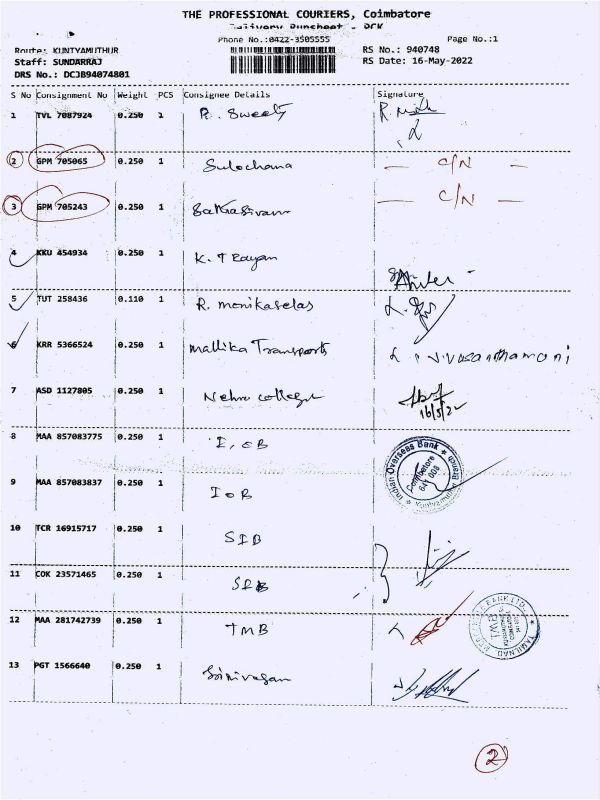 THE PROFESSIONAL COURIERS, Coimbatore
Delivery Runsheet - DCK
Phone No.:0422-3505555 Page No.:1
Route: KUNIYAMUTHUR RS No.: 940748
Staff: SUNDARRAJ RS Date: 16-May-2022
DRS No.: DCJB94074801
S No Consignment No Weight PCS Consignee Details Signature
1 TVL 7087924 0.250 1 R. Sweety
2 GPM 705065 0.250 1 Sulochana C/N
3 GPM 705243 0.250 1 C/N
4 KKU 454934 0.250 1
5 TUT 258436 0.110 1
6 KRR 5366524 0.250 1 Mallika Transports
7 ASD 1127805 0.250 1 Nehru college
16/5/22
8 MAA 857083775 0.250 1 I.OB
Indian Overseas Bank
Coimbatore
641 008
9 MAA 857083837 0.250 1 IOB
10 TCR 16915717 0.250 1 SIB
11 COK 23571465 0.250 1 SIB
12 MAA 281742739 0.250 1 TMB
13 PGT 1566640 0.250 1 Srinivasan
2